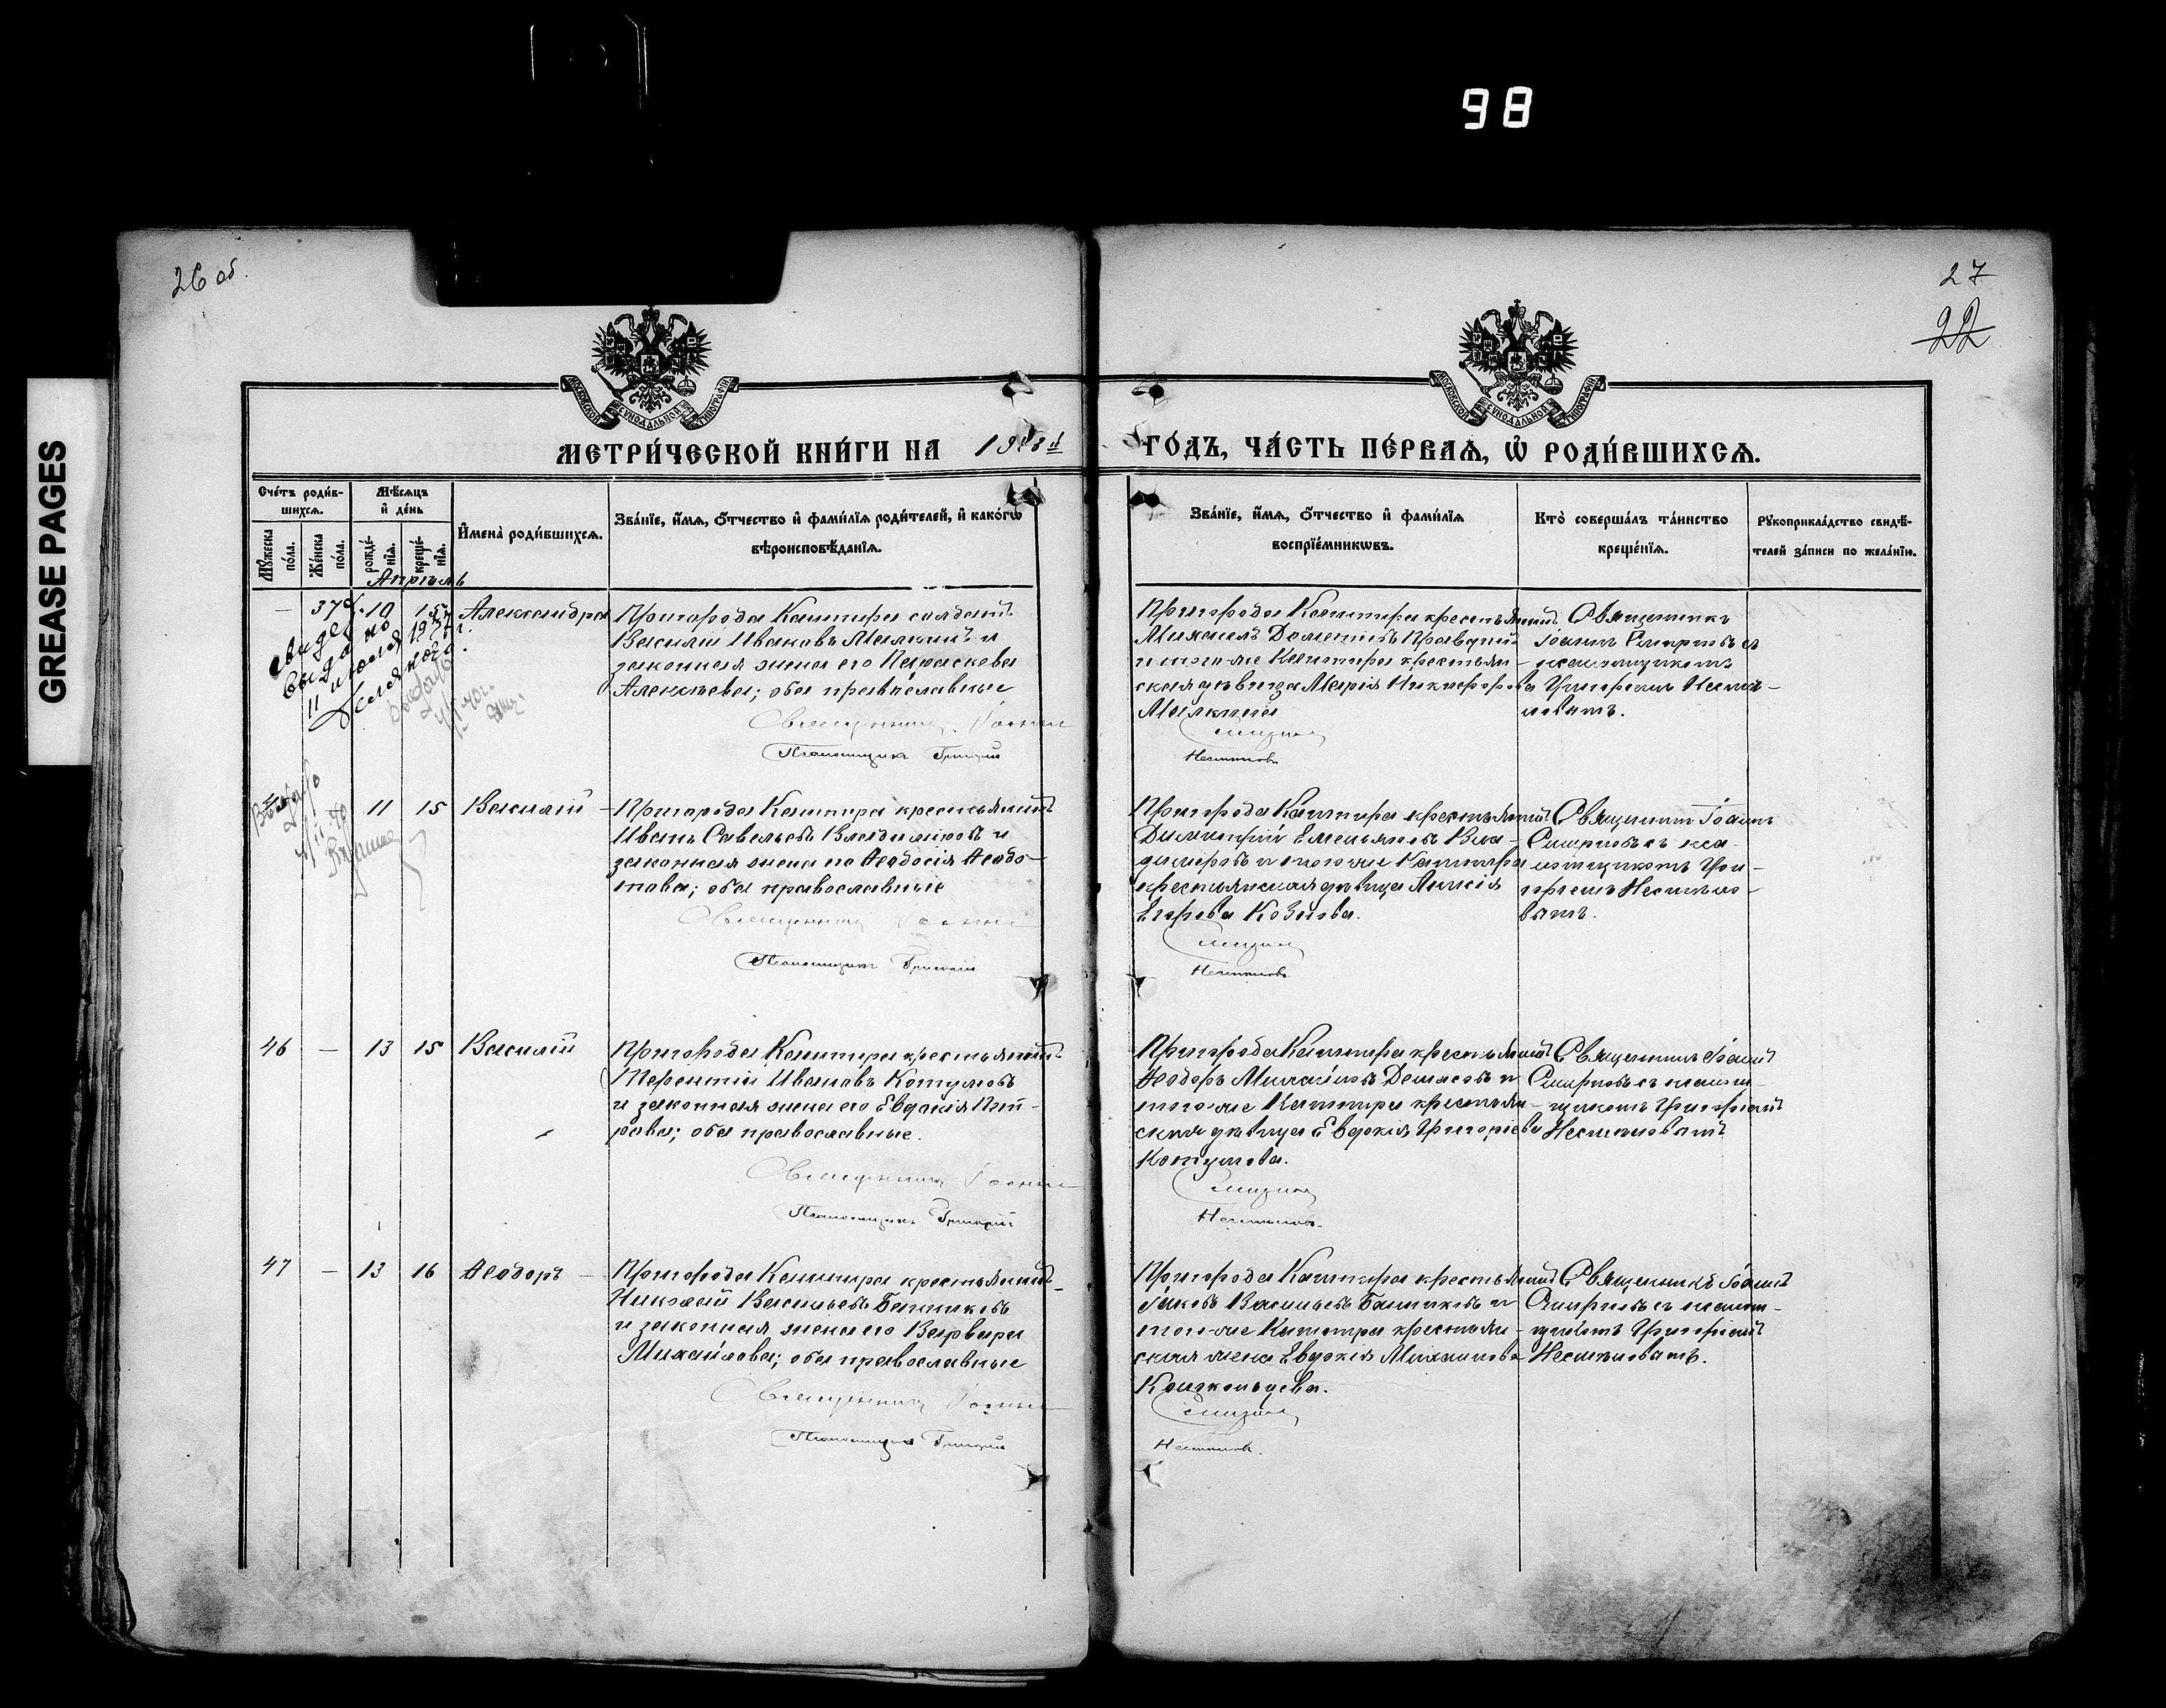 98
GREASE PAGES
26 об.
27
22
МОСКОВСКОЙ СѴНОДАЛЬНОЙ ТИПОГРАФІИ
МОСКОВСКОЙ СѴНОДАЛЬНОЙ ТИПОГРАФІИ
МЕТРИ́ЧЕСКОЙ КНИ́ГИ НА
ГО́ДЪ, ЧА́СТЬ ПЕ́РВАѦ, Ѡ҆ РОДИ́ВШИХСѦ.
Сче́тъ роди́в-
шихсѧ.
Мꙋ́жеска
по́ла.
Же́нска
по́ла.
Мѣ́сѧцъ
и҆ де́нь
рожде́-
нїѧ.
креще́-
нїѧ.
И҆мена̀ роди́вшихсѧ.
Зва́нїе, и҆́мѧ, ѻ҆́тчество и҆ фами́лїѧ роди́телей, и҆ како́гѡ
вѣроисповѣ́данїѧ.
Зва́нїе, и҆́мѧ, ѻ҆́тчество и҆ фами́лїѧ
воспрїе́мникѡвъ.
Кто̀ соверша́лъ та́инство
креще́нїѧ.
Рꙋкоприкла́дство свидѣ́-
телей за́писи по жела́нїю.
Апрѣль
— 37 10 15 Александра
Пригорода Каштыра солдатъ
Василій Ивановъ Малкинъ и
законная жена его Параскева
Алексѣева; оба православные
Священникъ Іоаннъ
Псаломщикъ Григорій
Пригорода Каштыра крестьянинъ
Михаилъ
и того-же Каштыра крестьян-
ская дѣвица Марія Никифорова
Малкина
Смирновъ
Несмѣловъ
Священникъ
Іоаннъ Смирновъ съ
псаломщикомъ
Григоріемъ Несмѣ-
ловымъ.
Свидет
выдано
11 июля 1937
Выдано
11 15 Василій —
Пригорода Каштыра крестьянинъ
Иванъ Савельевъ Владиміровъ и
законная жена его Ѳеодосія Ѳеодо-
това; оба православные
Священникъ Іоаннъ
Псаломщикъ Григорій
Пригорода Каштыра крестьянинъ
Димитрій Емельяновъ Вла-
диміровъ и того-же Каштыра
крестьянская дѣвица Анисія
Егорова Козлова.
Смирновъ
Несмѣловъ
Священникъ Іоаннъ
Смирновъ съ пса-
ломщикомъ Гри-
горіемъ Несмѣло-
вымъ.
46 — 13 15 Василій
Пригорода Каштыра крестьянинъ
Терентій Ивановъ Котумовъ
и законная жена его Евдокія Пет-
рова; оба православные.
Священникъ Іоаннъ
Псаломщикъ Григорій
Пригорода Каштыра крестьянинъ
Ѳеодоръ Михайловъ Денисовъ и
того-же Каштыра крестьян-
ская дѣвица Евдокія Григорьева
Котумова.
Смирновъ
Несмѣловъ
Священникъ Іоаннъ
Смирновъ съ псалом-
щикомъ Григоріемъ
Несмѣловымъ
47 — 13 16 Ѳеодоръ —
Пригорода Каштыра крестьянинъ
Николай Васильевъ Башмаковъ
и законная жена его Варвара
Михайлова; оба православные
Священникъ Іоаннъ
Псаломщикъ Григорій
Пригорода Каштыра крестьянинъ
Іаковъ Васильевъ Башмаковъ и
того-же Каштыра крестьян-
ская жена Евдокія Михайлова
Смирновъ
Несмѣловъ.
Священникъ Іоаннъ
Смирновъ съ псалом-
щикомъ Григоріемъ
Несмѣловымъ.